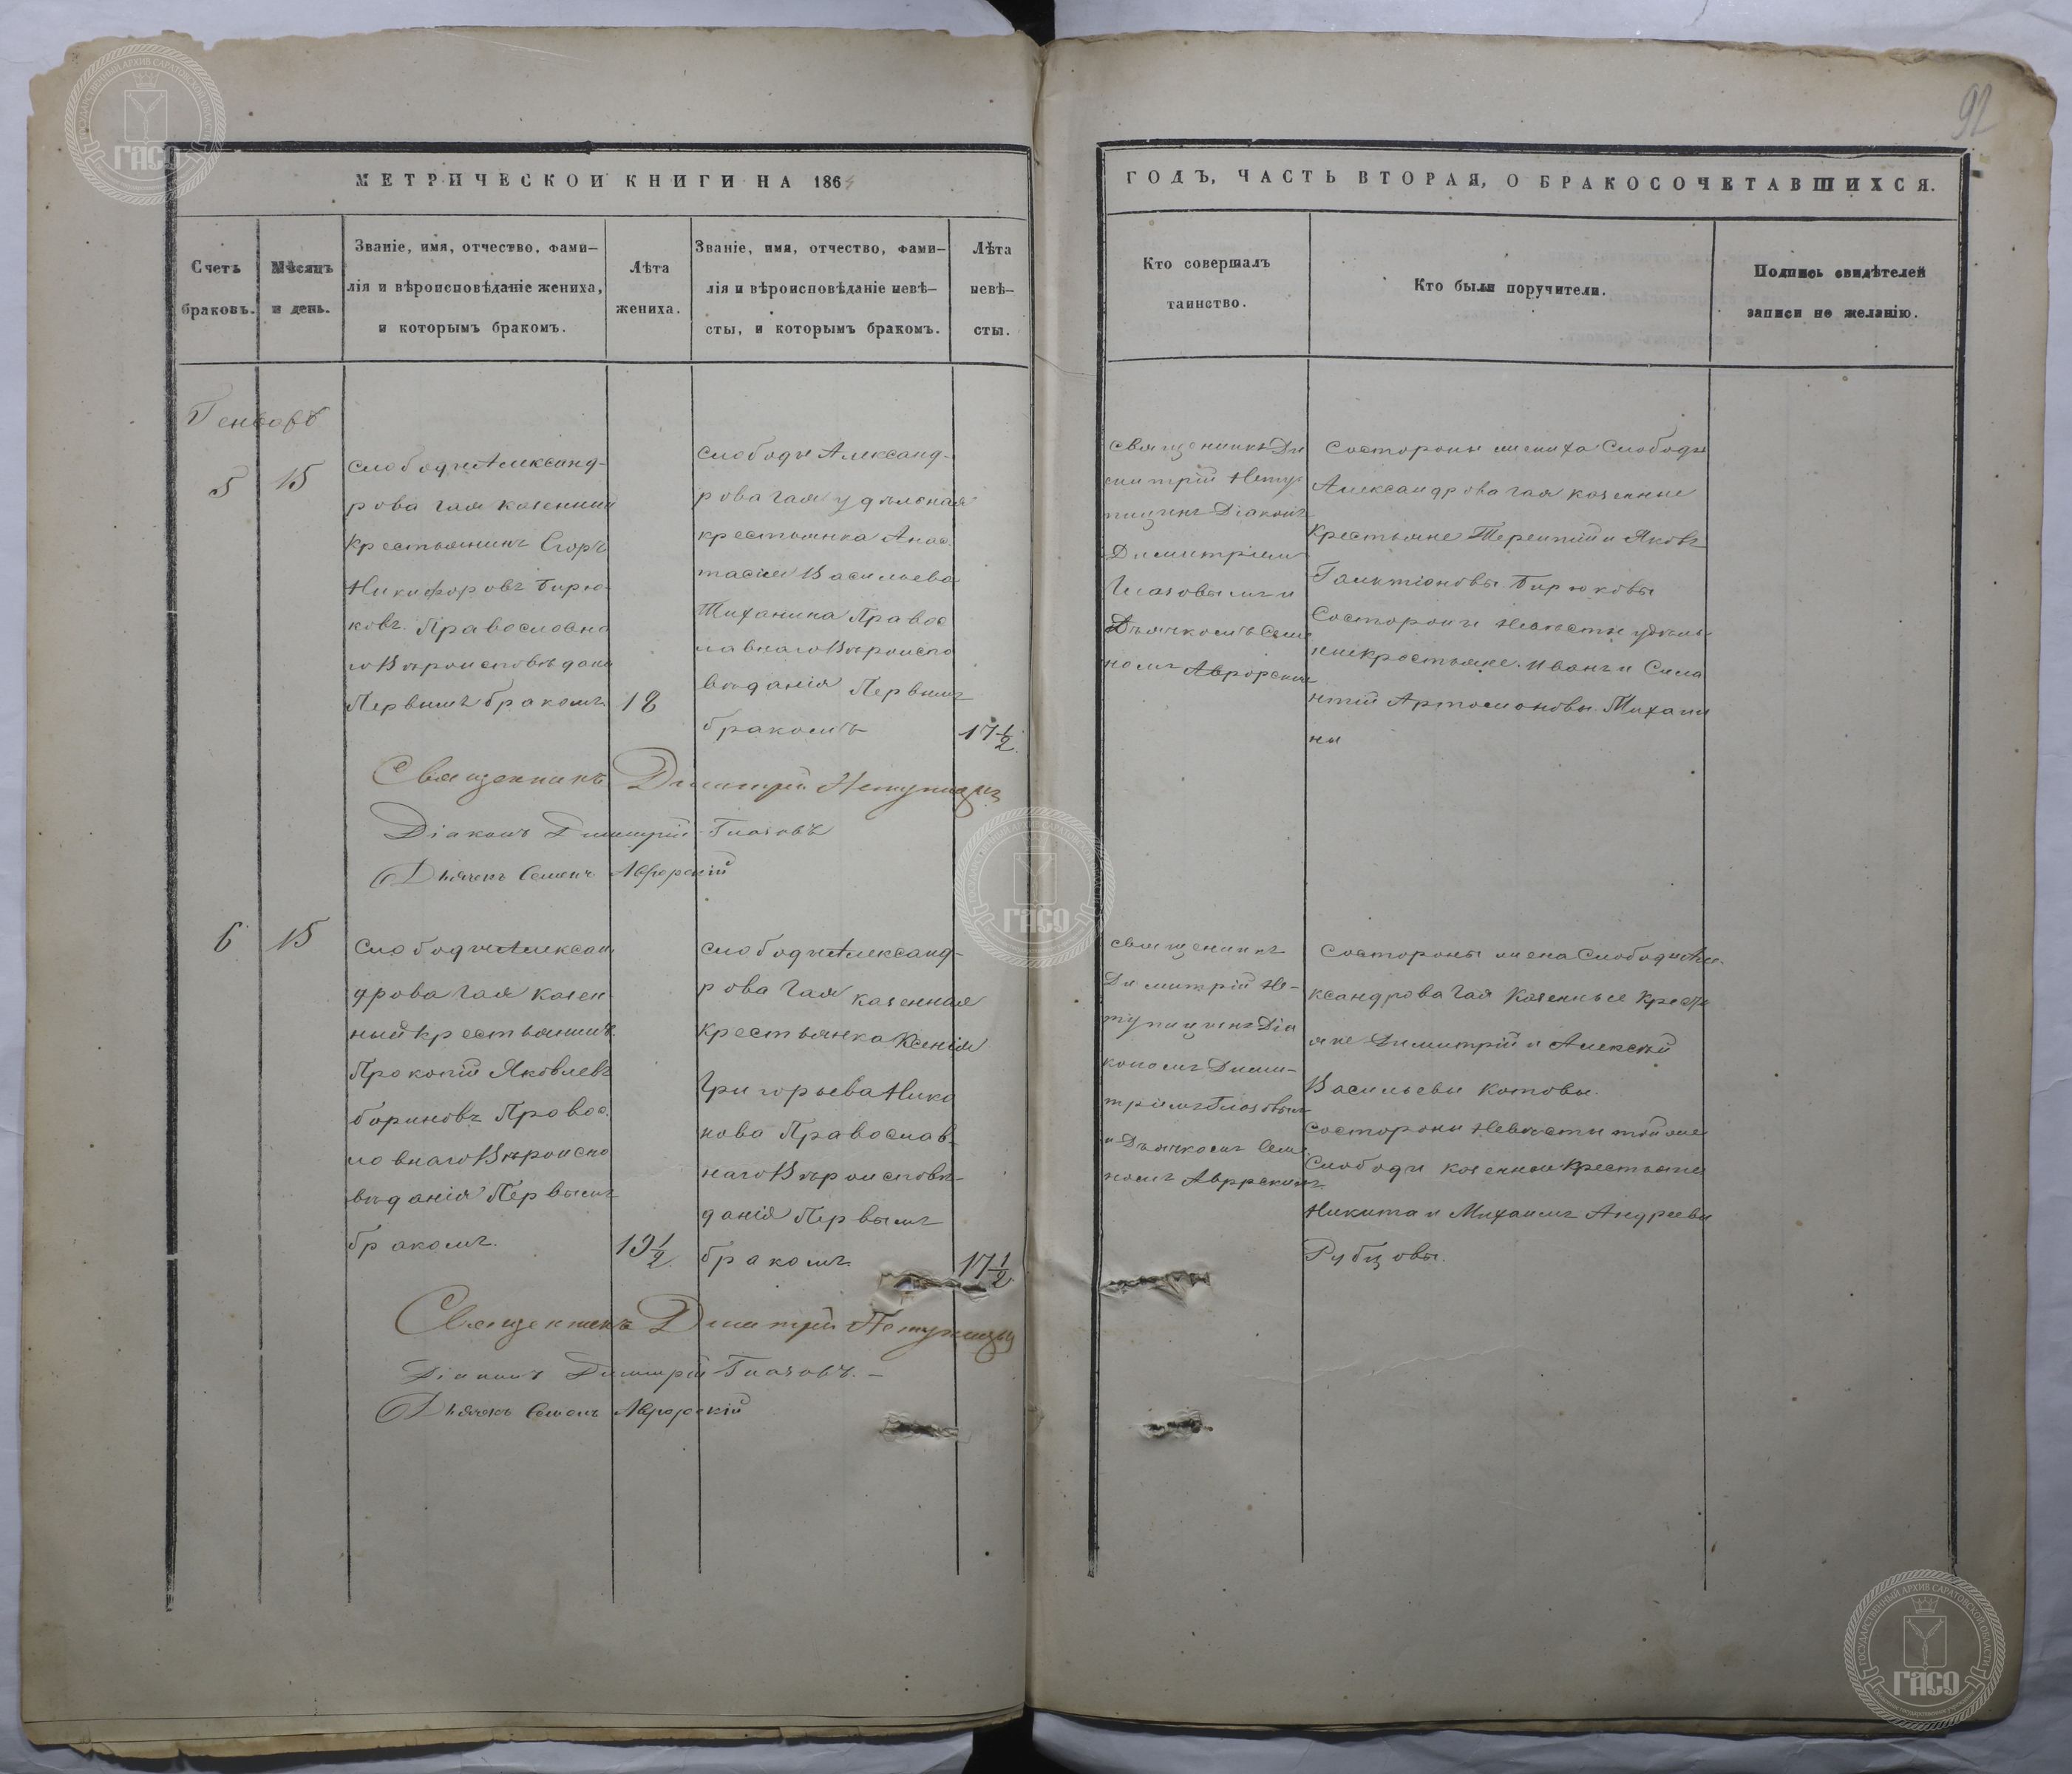 92
МЕТРИЧЕСКОЙ КНИГИ НА 1864
ГОДЪ, ЧАСТЬ ВТОРАЯ, О БРАКОСОЧЕТАВШИХСЯ.
Счетъ
браковъ.
Мѣсяцъ
и день.
Званіе, имя, отчество, фами-
лія и вѣроисповѣданіе жениха,
и которымъ бракомъ.
Лѣта
жениха.
Званіе, имя, отчество, фами-
лія и вѣроисповѣданіе невѣ-
сты, и которымъ бракомъ.
Лѣта
невѣ-
сты.
Кто совершалъ
таинство.
Кто были поручители.
Подпись свидѣтелей
записи по желанію.
Генварь
5
15
Слободы Александ-
рова Гая казенный
крестьянинъ Егоръ
Никифоровъ Бирю-
ковъ. Православна
го Вѣроисповѣдані
Первымъ бракомъ.
18
Слободы Александ-
рова Гая удѣльная
крестьянка Анас
тасия Васильева
Тиханина Правос
лавнаго Вѣроиспо
вѣданія Первымъ
бракомъ
17 1/2.
Священникъ Ди
митрій Нету
пицынъ Діакон
Димитріем
Глазовымъ и
Дьячкомъ Семе
номъ Аврорским
Состороны жениха Слободы
Александрова Гая казенные
Крестьяне Терентий и Яковъ
Галактіоновы Бирюковы
Состороны Невѣсты удѣль-
ные крестьяне. Иванъ и Сила
нтій Артомоновы. Тихани
ны
Священникъ Дмитрій Нетупицын
Діаконъ Димитрій Глазовъ
Дьячекъ Семенъ Аврорскій
6
15
Слободы Алексан
дрова Гая казен
ный крестьянинъ
Прокопій Яковлевъ
Бариновъ Правос.
лавнаго Вѣроиспо
вѣданія Первымъ
бракомъ.
19 1/2.
Слободы Александ-
рова Гая казенная
крестьянка Ксенія
Григорьева Нико
нова Православ.
наго Вѣроисповѣ-
данія Первымъ
бракомъ
17 1/2.
священникъ
Димитрій Не-
тупицынъ Діа
кономъ Дими-
тріемъ Глазовым
и Дьячкомъ Семе
номъ
Состороны Слободы Але
ксандрова Гая Казенные Крестья
яне Димитрій и Алексѣй
Васильевы Котовы.
Состороны Невѣсты той же
Слободы казенные Крестьяне
Никита и Михаилъ Андреевы
Рубцовы.
Священникъ Дмитрій Нетупицын
Діаконъ Димитрій Глазовъ. -
Дьячекъ Семенъ Аврорскій
ГОСУДАРСТВЕННЫЙ АРХИВ САРАТОВСКОЙ ОБЛАСТИ
ГАСО